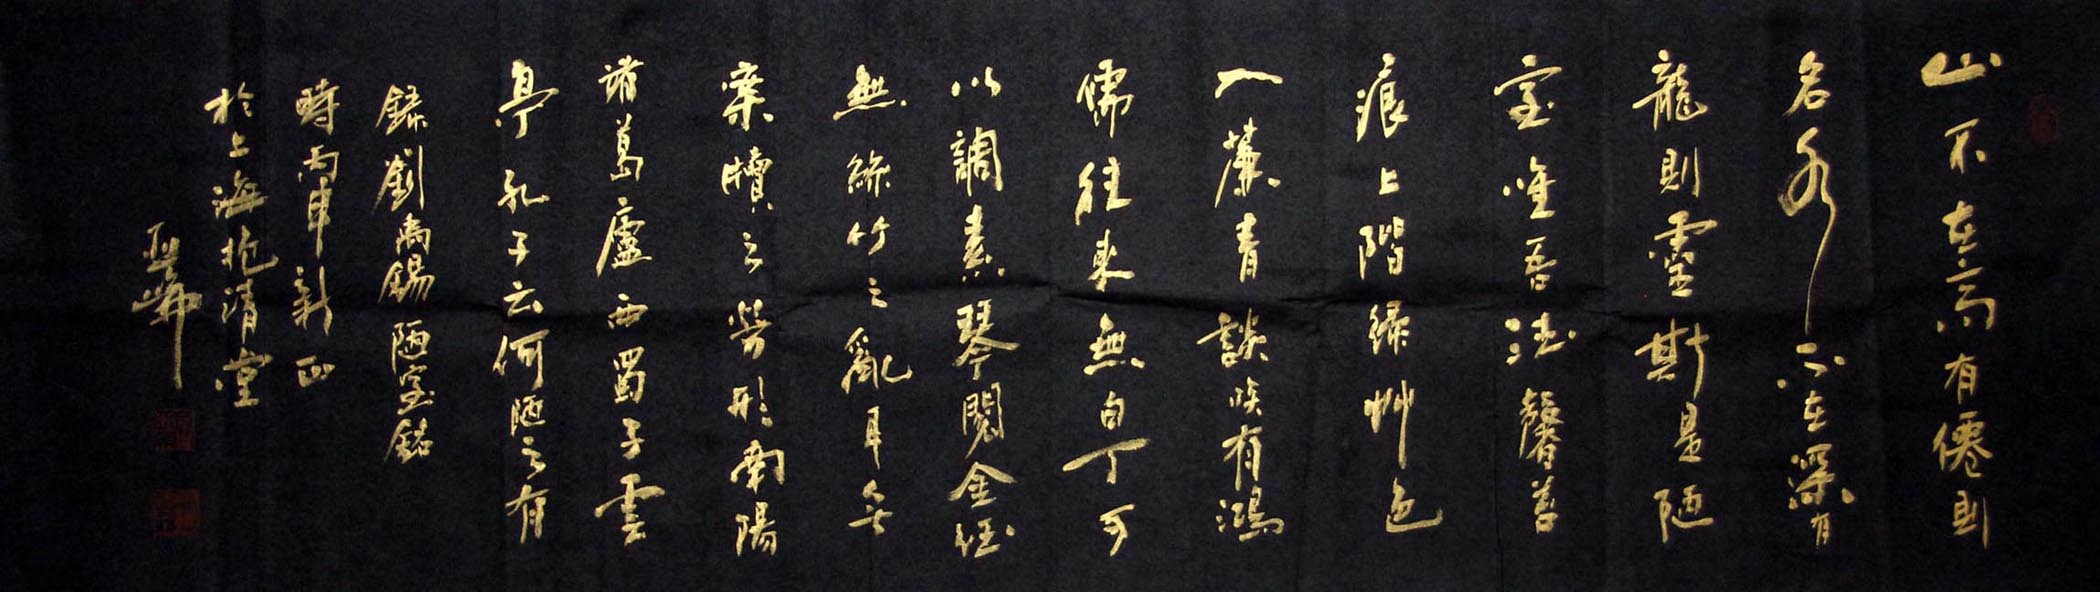 山不在高有僊則
名水不在深有
龍則靈斯是陋
室唯吾德馨苔
痕上階綠艸色
入簾青談咲有鴻
儒往來無白丁可
以調素琴閱金經
無絲竹之亂耳无
案牘之勞形南陽
諸葛廬西蜀子雲
亭孔子云何陋之有
錄劉禹錫陋室銘
時丙申新正
於上海抱清堂